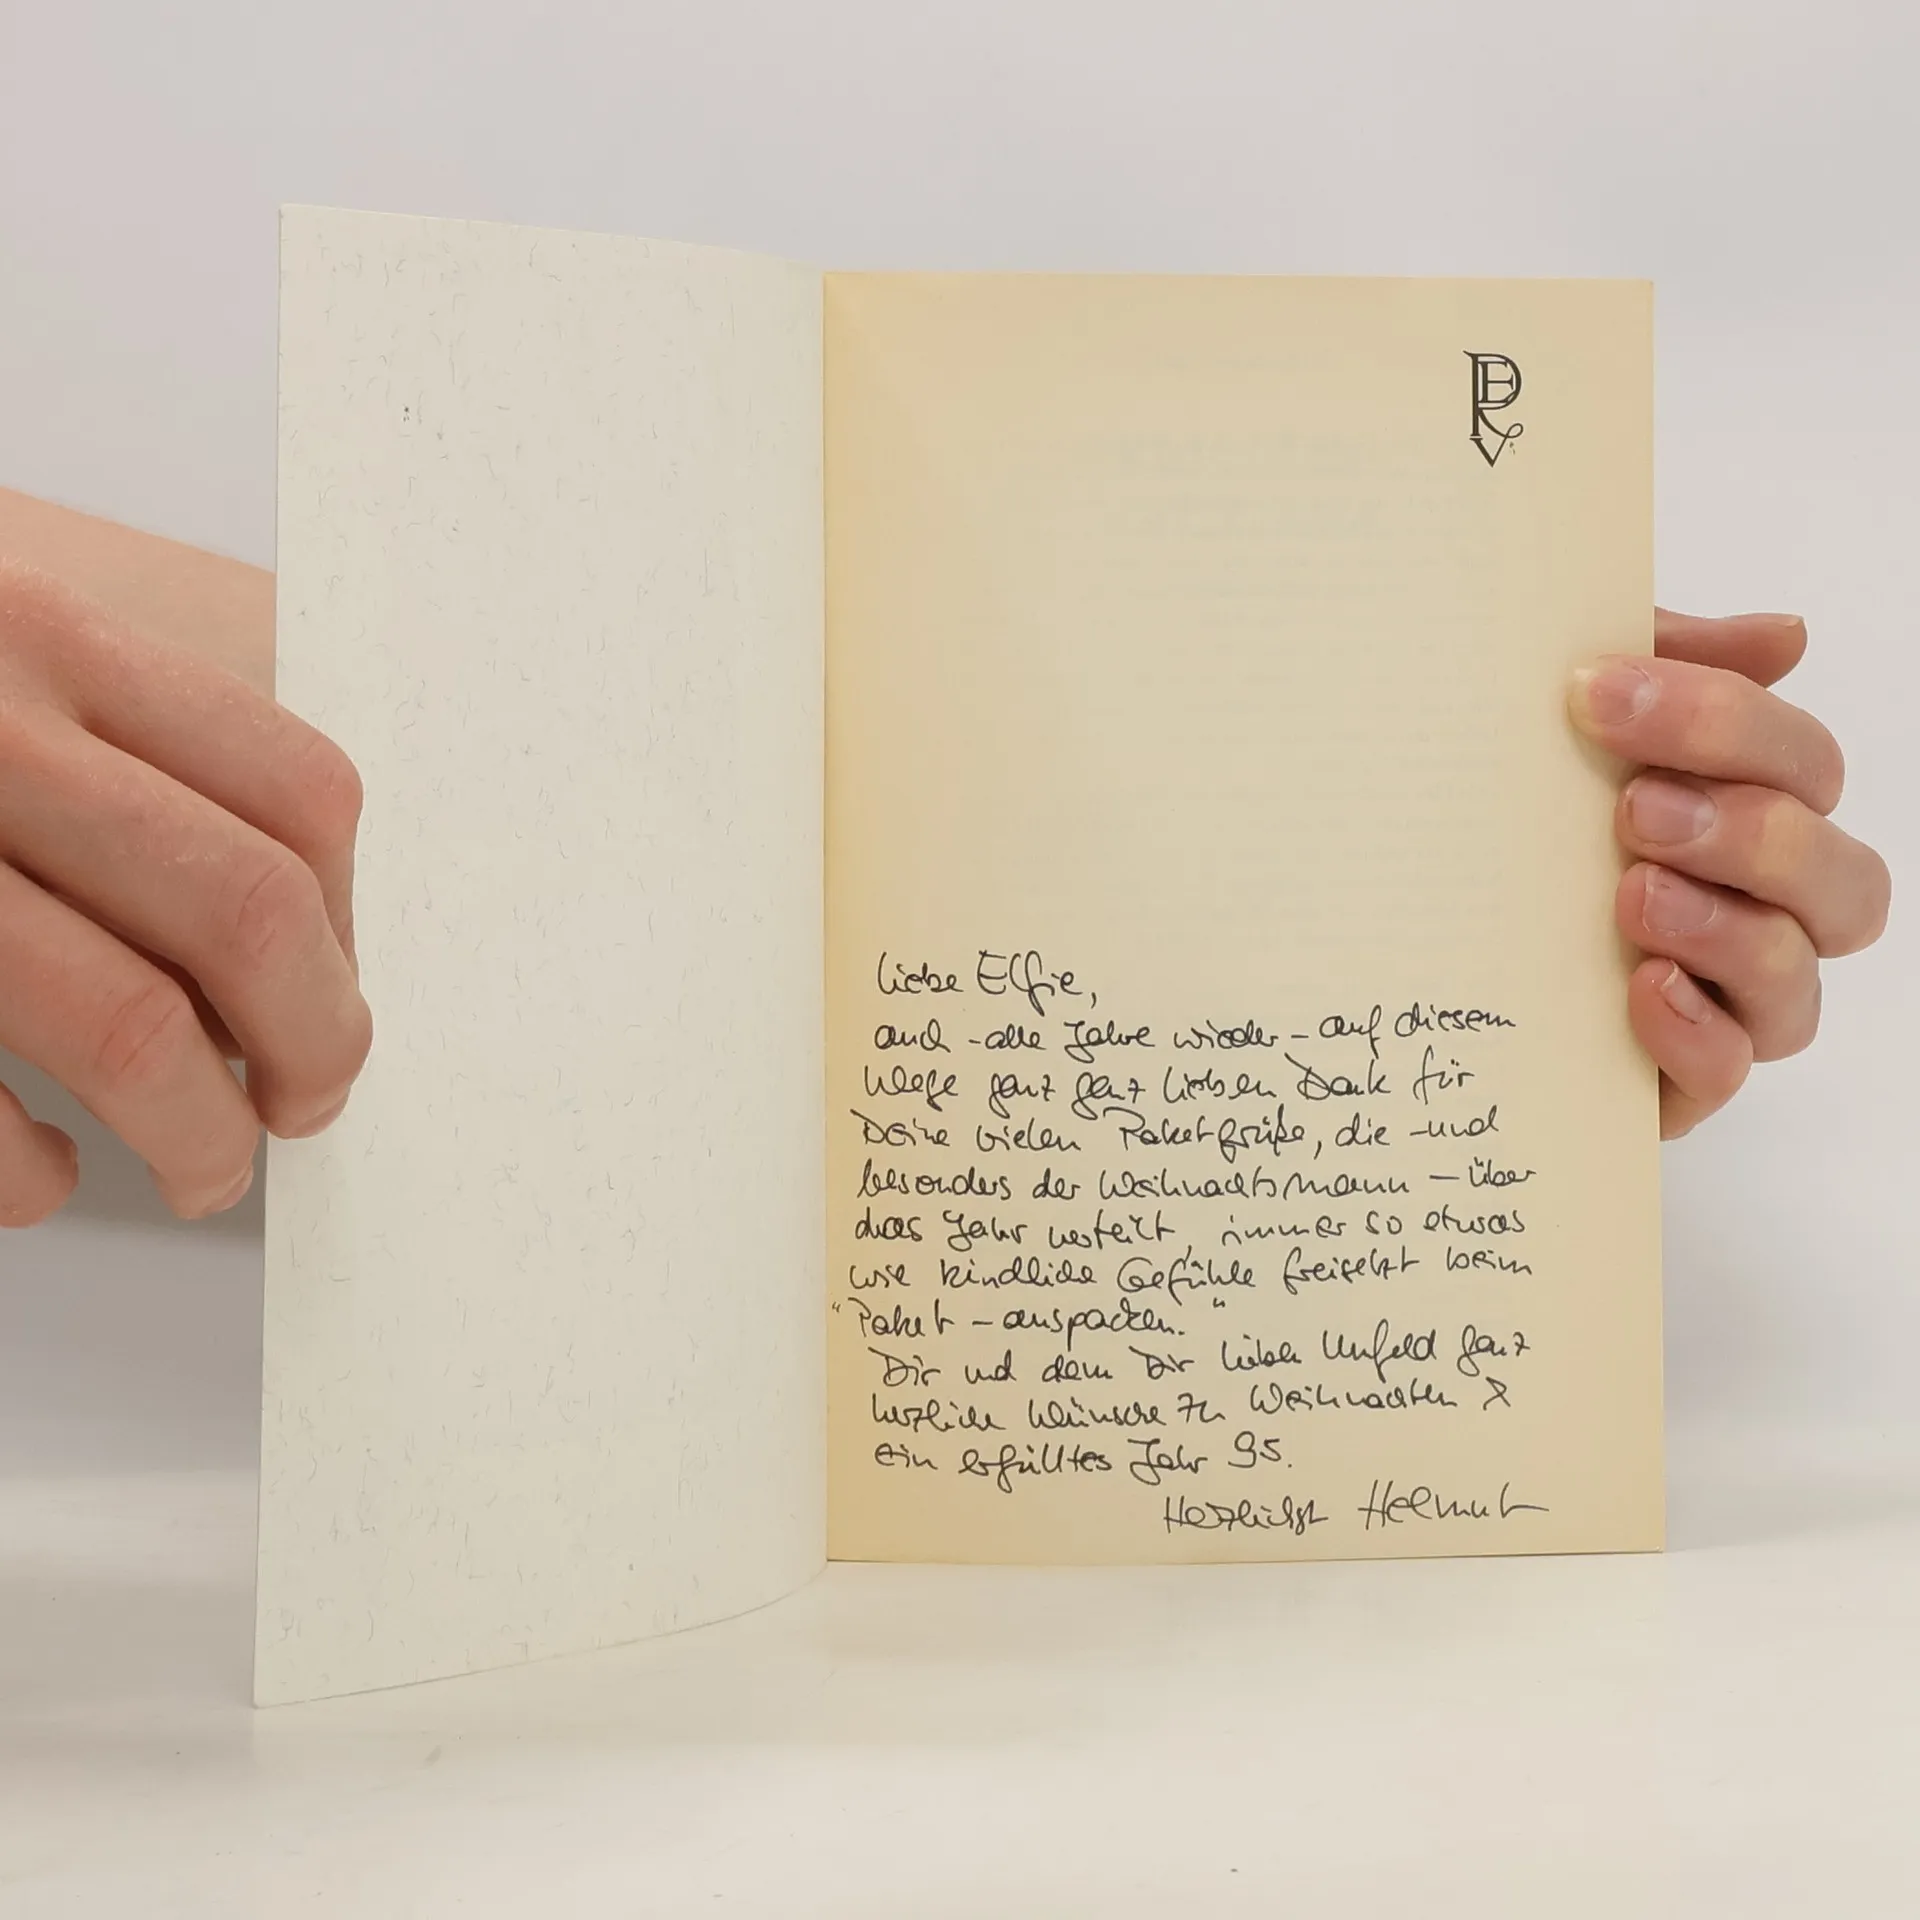 PERV
Liebe Elfie,
auch - alle Jahre wieder - auf diesem
Wege ganz ganz lieben Dank für
Deine vielen Paketgrüße, die - und
besonders der Weihnachtsmann - über
das Jahr verteilt, immer so etwas
wie kindliche Gefühle freisetzt beim
"Paket - auspacken."
Dir und dem Dir lieben Umfeld ganz
herzliche Wünsche zu Weihnachten &
ein erfülltes Jahr 95.
Herzlichst Helmut